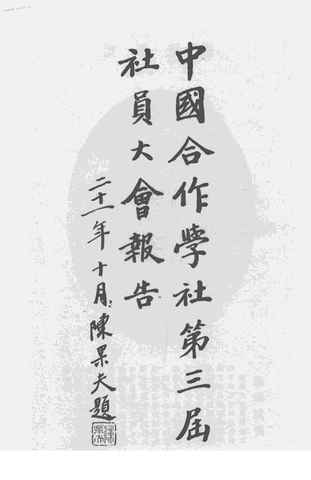 中國合作學社第三屆
社員大會報告
二十一年十月陳果夫題